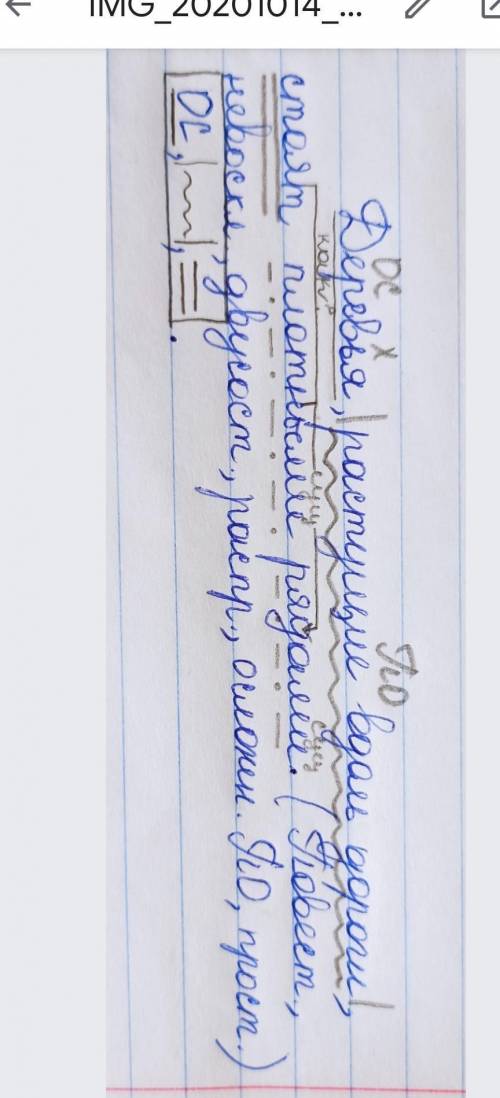 IMG_20201014_...
ОС х ПО
Деревья, растущие вдоль дороги,
как? сущ сущ
стоят плотными рядами. (Повест.,
невоскл., двусост., распр., осложн. ПО, прост.)
ОС, | |, .